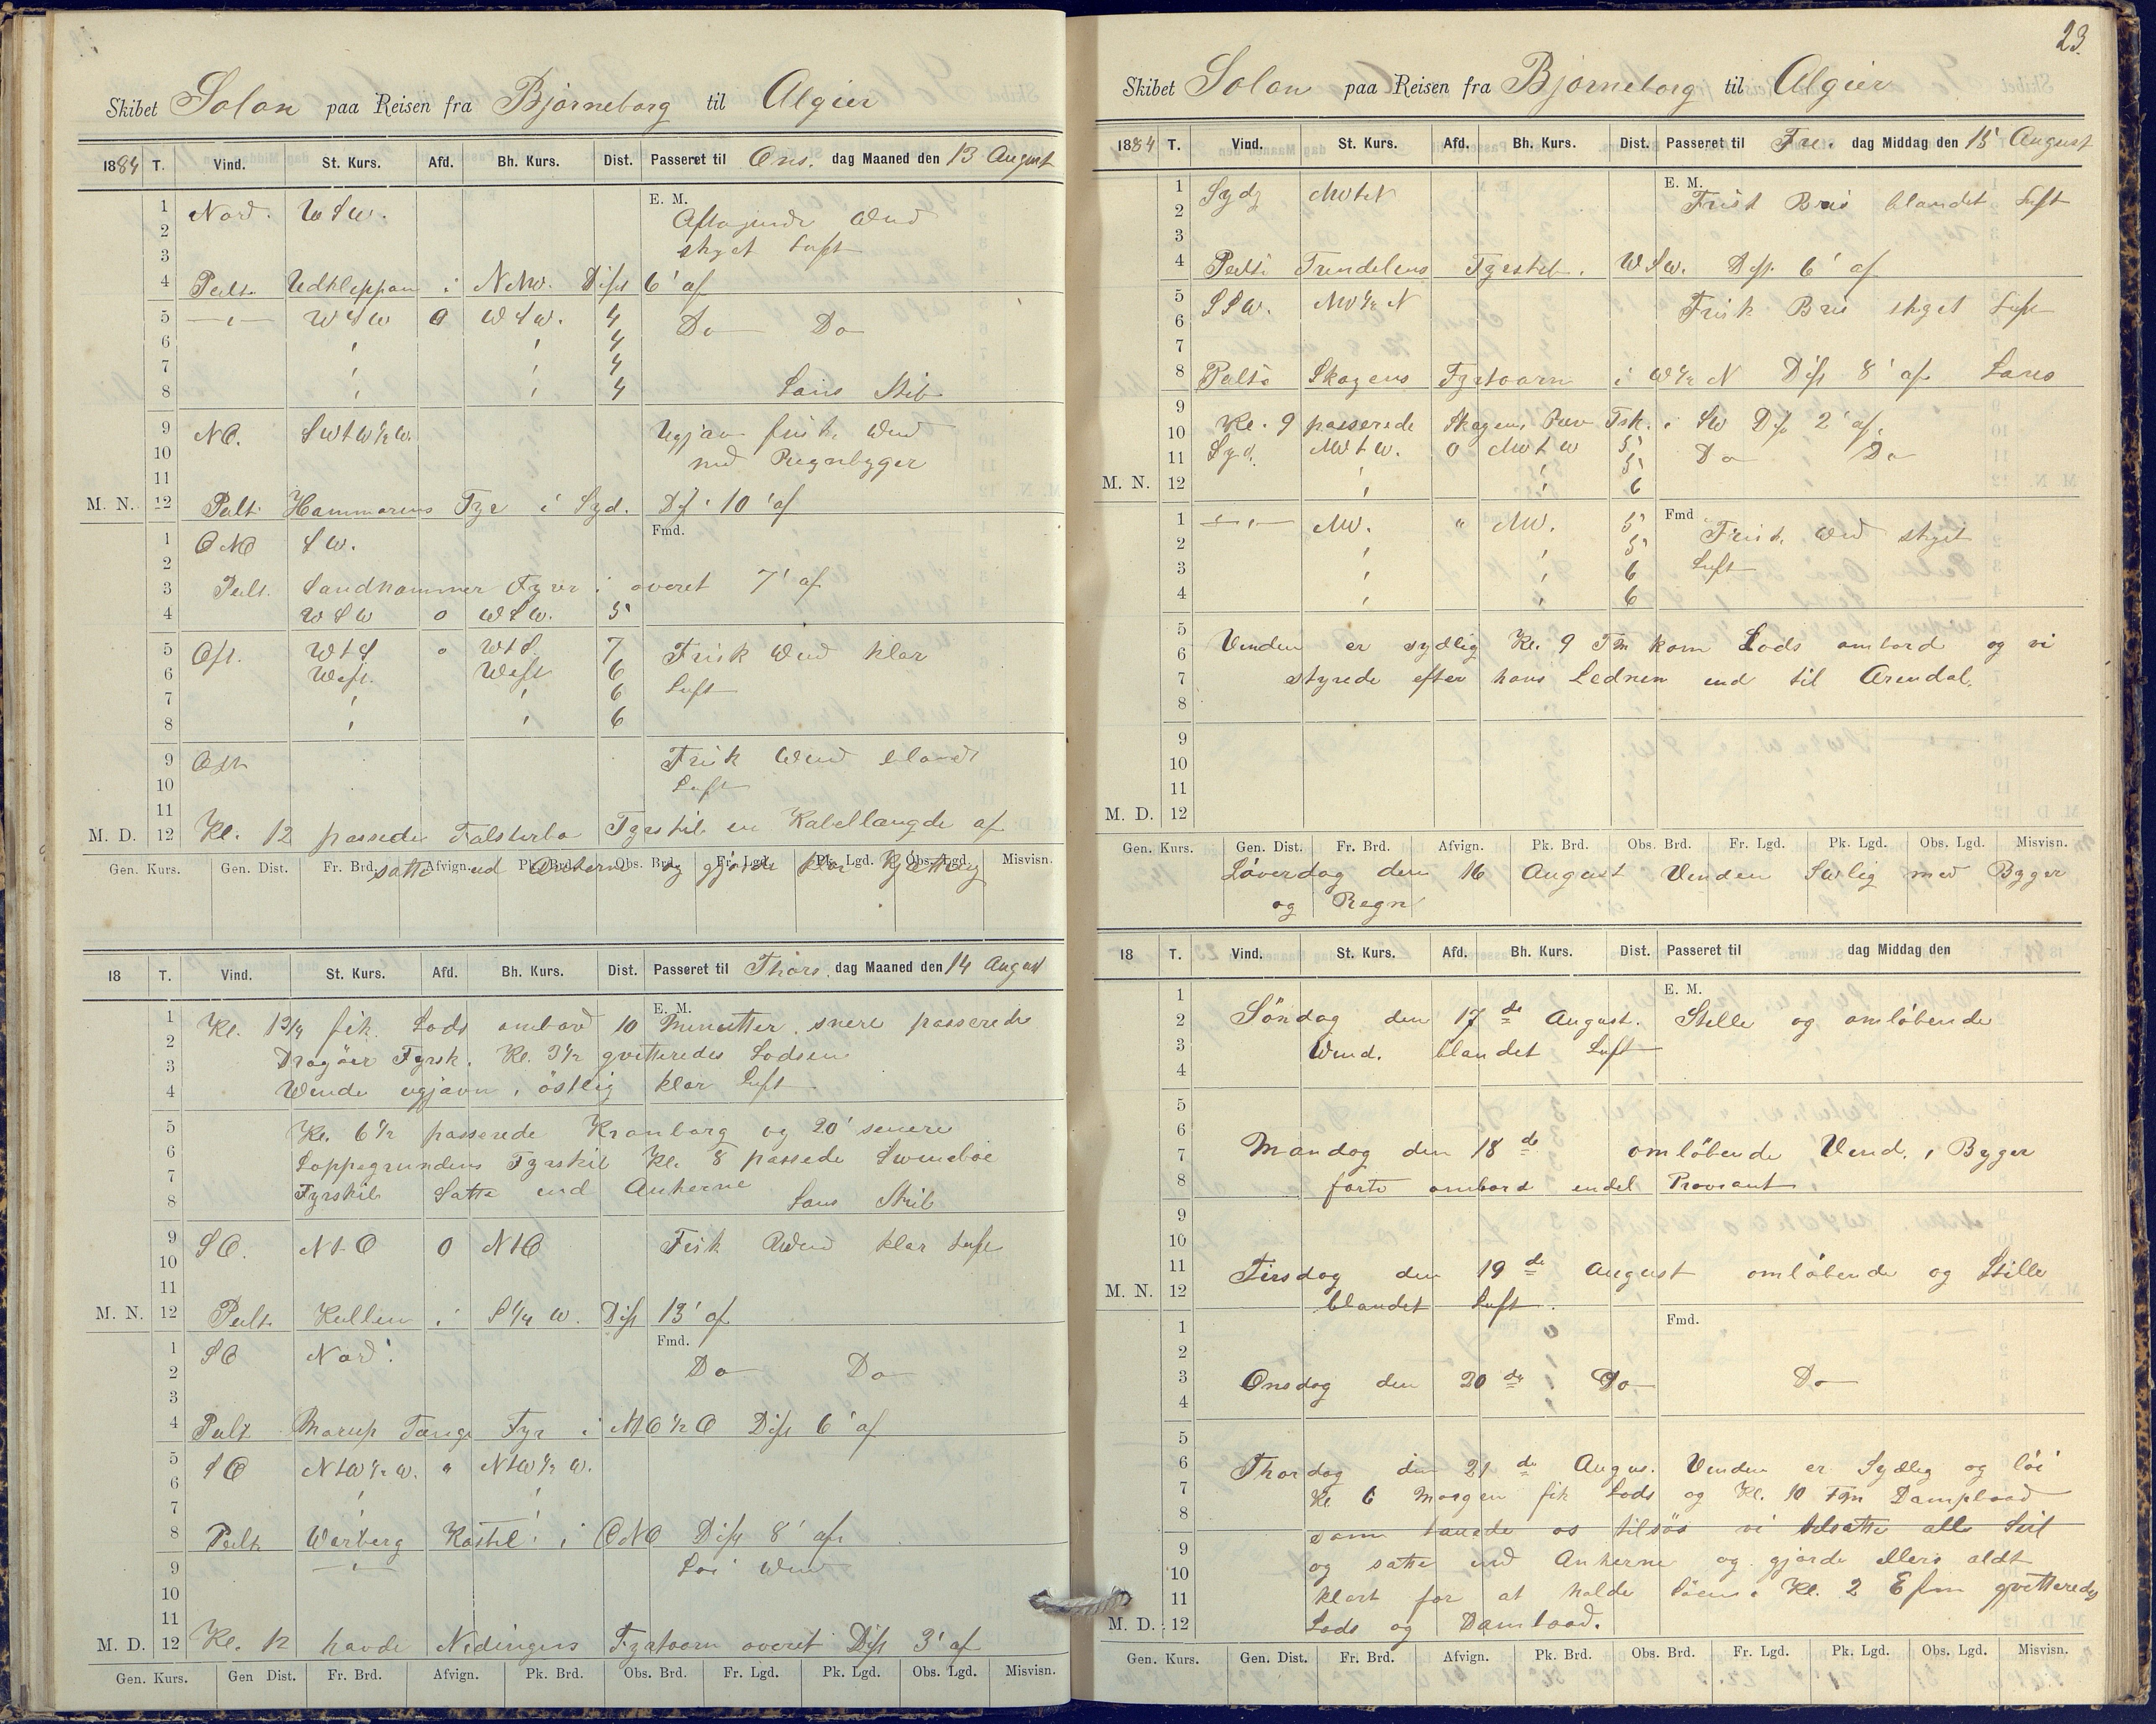 Skibet Solon paa Reisen fra Bjørneborg til Algier
1884 T. Vind. St. Kurs. Afd. Bh. Kurs. Dist. Passeret til Ons. dag Maaned den 13 August
E. M.
1 Nord. WSW. Aftagende Wind
2 skyet Luft
3
4 Peilt Udklippan i NNW. Dist 6' af
5 WSW 0 WSW. 4 Do Do
6 4
7 4
8 4 Lens Skib
9 NO. SWtW½W. Ugjævn frisk Wind
10 med Regnbyger
11
M. N. 12 Peilt Hammerens Fyr i Syd. Dist 10' af
Fmd.
1 ONO SW.
2
3 Peilt. Sandhammer Fyrer i overet 7' af
4 WSW 0 WSW. 5
5 Ost. WtS 0 WtS. 7 Frisk Wind klar
6 West. West 6 Luft
7 6
8 6
9 Ost Frisk Wind blandt
10 Luft
11
M. D. 12 Kl. 12 passede Falsterbo Fyrskib en Kabellængde af
Gen. Kurs. Gen. Dist. Fr. Brd. Afvign. Pk. Brd. Obs. Brd. Fr. Lgd. Pk. Lgd. Obs. Lgd. Misvisn.
satte ud Ankerne og gjorde klar Kjætting
18 T. Vind. St. Kurs. Afd. Bh. Kurs. Dist. Passeret til Thors. dag Maaned den 14 August
E. M.
1 Kl. 1¾ fik Lods ombord 10 Minutter snere passerede
2
3 Dragöer Fyrsk. Kl. 3½ qvitteredes Lodsen
4 Winde ugjævn, östlig klar Luft
5 Kl. 6½ passerede Kronborg og 20' senere
6 Loppegrundens Fyrskib Kl. 8 passede Swineboe
7 Fyrskib Satte ind Ankerne
8 Lens Skib
9 SO. NtO 0 NtO Fisk Wind klar Luft
10
11
M. N. 12 Peilt Kullen i S¼W. Dist 13' af
Fmd.
1 SO Nord. Do Do
2
3
4 Peilt Morup Tange Fyr i NO½O Dist 6' af
5 SO NtW½W. " NtW½W.
6
7
8 Peilt Warberg Kastel i ONO Dist 8' af
9 Löi Wind
10
11
M. D. 12 Kl. 12 havde Nidingens Fyrtaarn overet Dist 3' af
Gen. Kurs. Gen Dist. Fr. Brd. Afvign. Pk. Brd. Obs. Brd. Fr. Lgd. Pk. Lgd. Obs. Lgd. Misvisn.
23.
Skibet Solon paa Reisen fra Bjørneborg til Algier
1884 T. Vind. St. Kurs. Afd. Bh. Kurs. Dist. Passeret til Fre. dag Middag den 15 August
E. M.
1 Syd NWtN Frisk Bris blandet Luft
2
3
4 Peilt Trindelens Fyrskib. WSW. Dist. 6' af
5 SSW. NW½N Frisk Bris skyet Luft
6
7
8 Peilt Skagens Fyrtaarn i W½N Dist 8' af Lens
9 Kl. 9 passerede Skagens Rev Fsk. i SW Dist 2' af.
10 Syd. NWtW. 0 NWtW 5 Do Do
11 5
M. N. 12 6
Fmd
1 NW. " NW. 5 Frisk Wind skyet
2 5 Luft
3 6
4 6
5 Vinden er sydlig Kl. 9 Fm kom Lods ombord og vi
6
7 styrede efter hans Lednin ind til Arendal.
8
9
10
11
M. D. 12
Gen. Kurs. Gen. Dist. Fr. Brd. Afvign. Pk. Brd. Obs. Brd. Fr. Lgd. Pk. Lgd. Obs. Lgd. Misvisn.
Löverdag den 16 August Vinden SWlig med Byger
og Regn
18 T. Vind. St. Kurs. Afd. Bh. Kurs. Dist. Passeret til dag Middag den
E. M.
1
2 Söndag den 17de August. Stille og omlöbende
3 Wind. blandet Luft
4
5
6
7 Mandag den 18de omlöbende Vind, Byger
8 førte ombord endel Proviant
9
10
11 Tirsdag den 19de August omlöbende og Stille
M. N. 12 blandet Luft.
Fmd.
1
2
3 Onsdag den 20de Do Do
4
5
6 Thorsdag den 21de Augus. Vinden er Sydlig og löi
7 Kl 6 Morgen fik Lods og Kl. 10 Fm Dampbaad
8 som bauede os tilsös vi tilsatte alle Seil
9 og satte ind Ankerne og gjorde ellers aldt
10
11 klart for at holde söen. Kl. 2 Efm qvitteredes
M. D. 12 Lods og Dambaad.
Gen. Kurs. Gen. Dist. Fr. Brd. Afvign. Pk. Brd. Obs. Brd. Fr. Lgd. Pk. Lgd. Obs. Lgd. Misvisn.